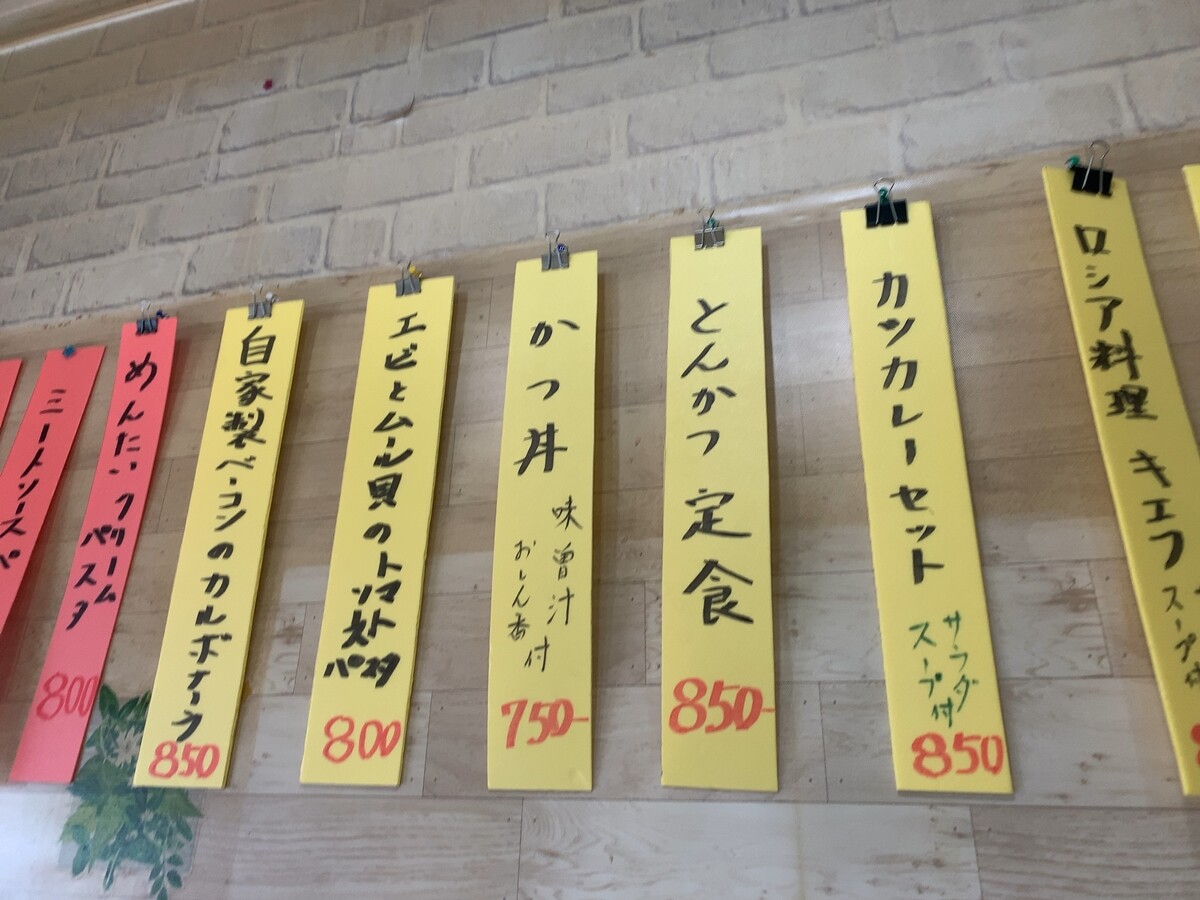 ロシア料理 キエフ
スープ付
カツカレーセット
サラダ
スープ付
850
とんかつ定食
850-
かつ丼
味噌汁
おしんこ付
750-
エビとムール貝のトマト
ソース
パスタ
800
自家製ベーコンのカルボナーラ
850
めんたいクリーム
パスタ
800
ミートソースパ